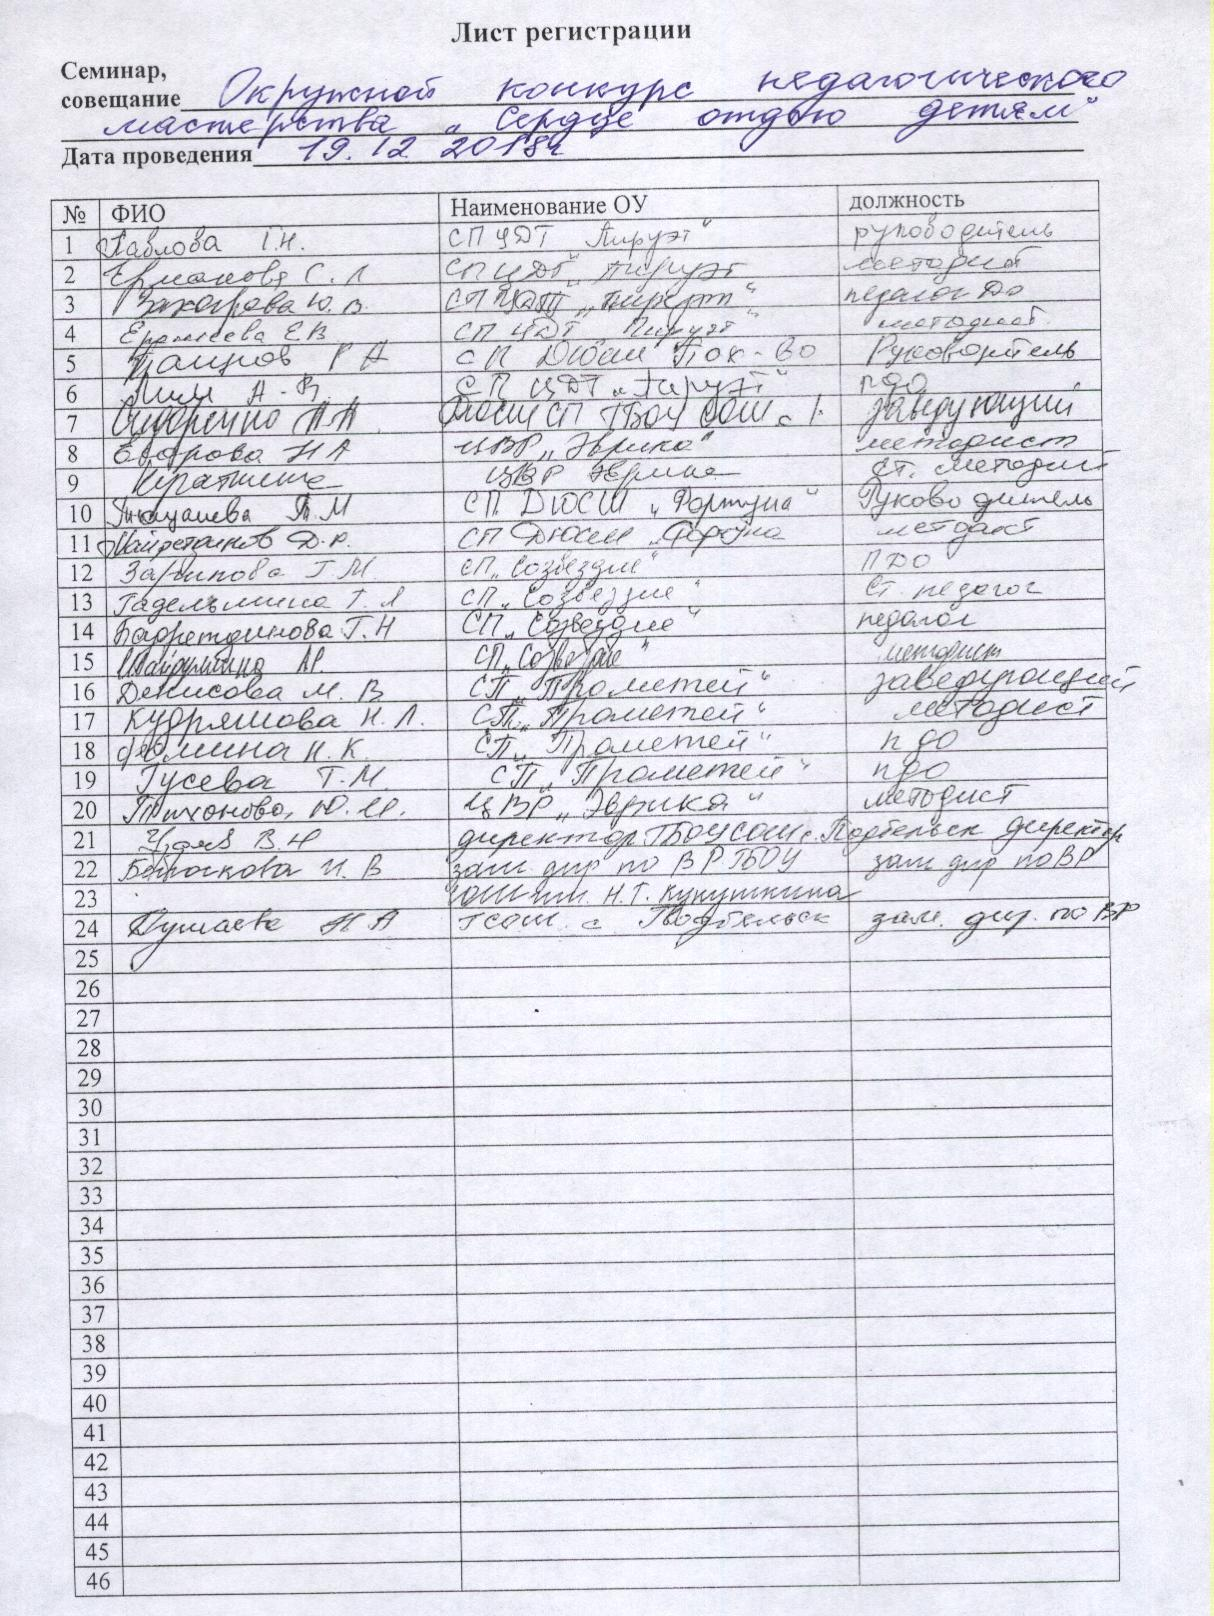 Лист регистрации
Семинар,
совещание Окружной конкурс педагогического
мастерства „Сердце отдаю детям“
Дата проведения 19.12 2018г
№ ФИО Наименование ОУ должность
1 Павлова Г.Н. СП ЦДТ Пируэт“ руководитель
2 Ермакова С. Л СП ЦДТ „Пируэт методист
3 Захарова Ю. В. СП ЦДТ „Пируэт“ педагог ДО
4 Е.В СП ЦДТ Пируэт“ методист
5 Р А СП ДЮСШ Пох-во Руководитель
6 А. В СП ЦДТ „Пируэт“ пдо
7 Сидоренко А.А. ДЮСШ СП ГБОУ СОШ заведующий
8 Егорова Н А ЦВР „Эврика“ методист
9 ЦВР Эврика ст. методист
10 Т М СП ДЮСШ „Фортуна“ Руководитель
11 Д.Р. СП ДЮСШ „Фортуна методист
12 Зарипова Г М СП „Созвездие“ ПДО
13 Гадельшина Г. Л СП „Созвездие“ Ст. педагог
14 Бадретдинова Г. Н СП „Созвездие“ педагог
15 А.Р. СП „Созвездие“ методист
16 Денисова М. В СП „Прометей“ заведующий
17 Кудряшова Н. Л. СП „Прометей“ методист
18 Фомина Н. К. СП „Прометей“ пдо
19 Гусева Т. М. СП „Прометей“ пдо
20 Тихонова Ю. И. ЦВР „Эврика“ методист
21 В.Н директор ГБОУ СОШ с. Подбельск директор
22 И. В зам. дир по ВР ГБОУ зам дир по ВР
23 им. Н.Т. Кукушкина
24 Н А с. Подбельск зам. дир. по ВР
25
26
27
28
29
30
31
32
33
34
35
36
37
38
39
40
41
42
43
44
45
46